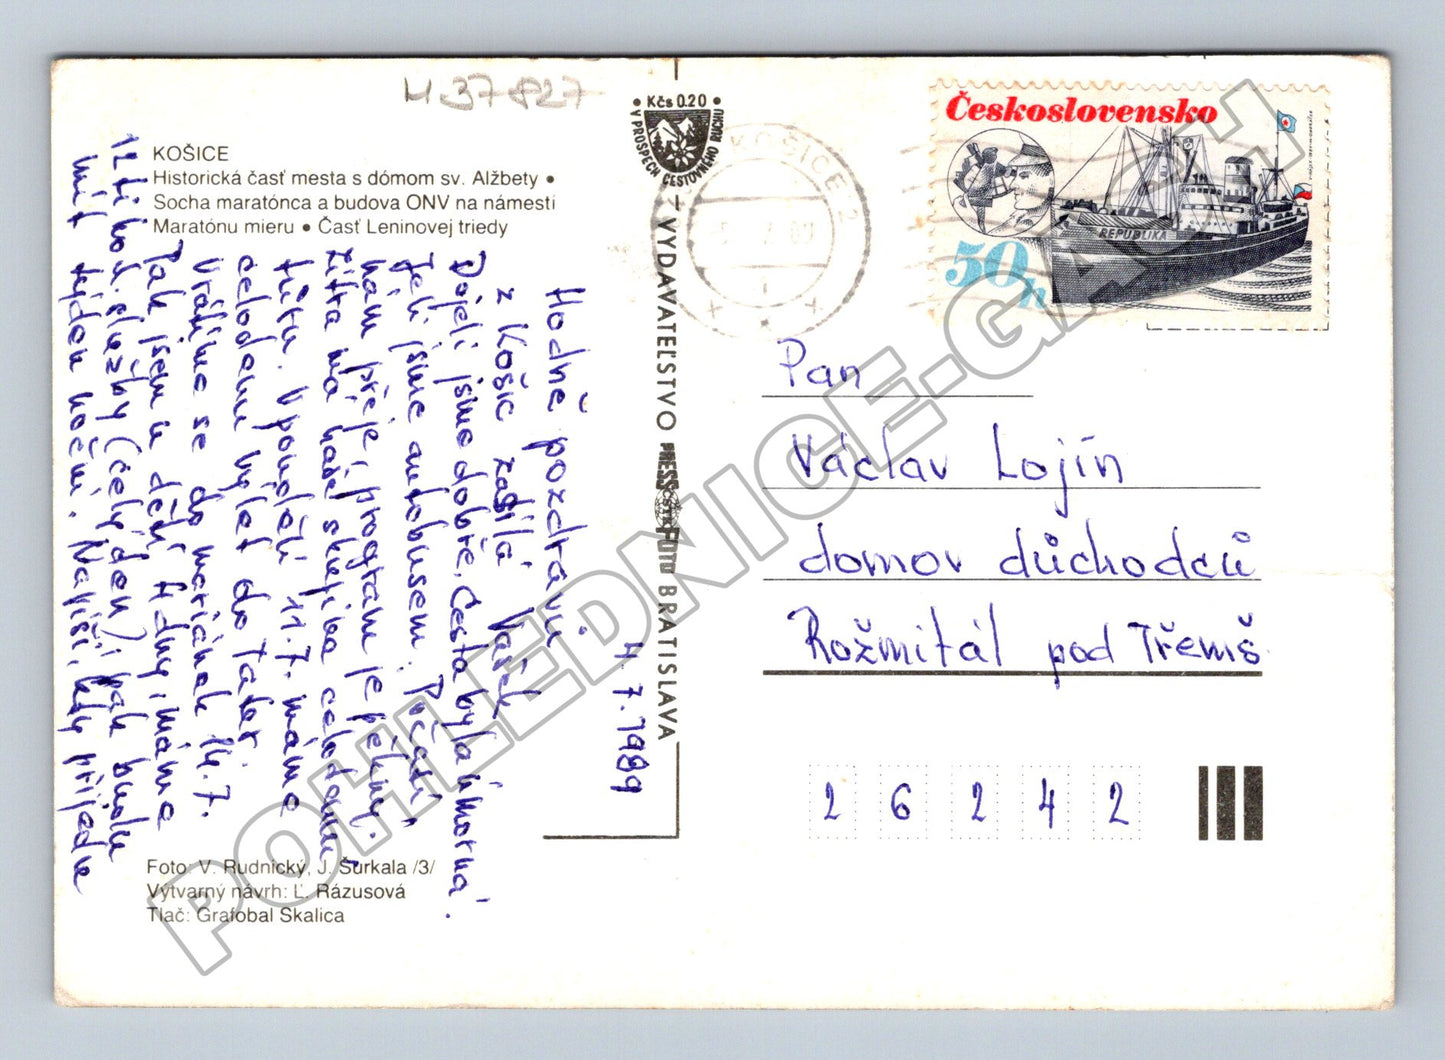 H 37 827
KOŠICE
Historická časť mesta s dómom sv. Alžbety •
Socha maratónca a budova ONV na námestí
Maratónu mieru • Časť Leninovej triedy
4.7.1989
Hodně pozdravů
z Košic zasílá Vašek.
Dojeli jsme dobře, cesta byla únavná.
Jeli jsme autobusem. Počasí
nám přeje, program je pěkný.
Zítra má naše skupina celodenní
túru. V pondělí 11.7. máme
celodenní výlet do Tater.
Vrátíme se do 14.7.
Pak jsem u dětí 4 dny, máme
12 hod. služby (celý den) pak budu
mít týden noční. Napiši, kdy přijedu
Foto: V. Rudnický, J. Šurkala /3/
Výtvarný návrh: Ľ. Rázusová
Tlač: Grafobal Skalica
• Kčs 0.20 •
V PROSPECH CESTOVNÉHO RUCHU
VYDAVATEĽSTVO PRESSFOTO BRATISLAVA
ČSTK
KOŠICE 2
Československo
REPUBLIKA
50h
Pan
Václav Lojín
domov důchodců
Rožmitál pod Třemš
26242
POHLEDNICE-GACH